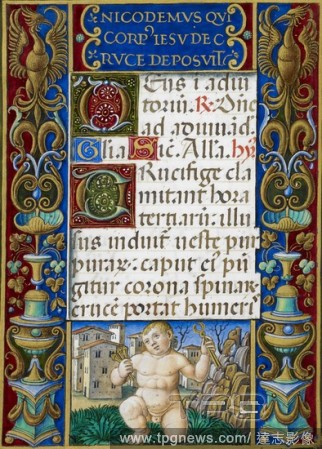 NICODEMVS QVI
CORP9 IESV DE C
RVCE DEPOSVIT
Eus i adiu
toriū. R. Dñe
ad adiuuā.d.
Glīa Sic̄. Alla. hȳ.
CRucifige cla
mitant hora
tertiarū: illu
sus induit̄ ueste pur
purar⁊ caput eī pū
gitur corona spinar
crucē portat humerī
www.tpgnews.com/ 達志影像